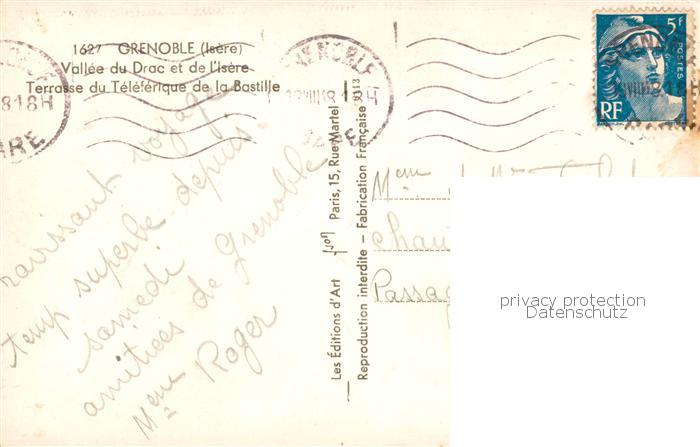 1627 GRENOBLE (Isère)
Vallée du Drac et de l'Isère
Terrasse du Téléférique de la Bastille
GRENOBLE
GARE
18H
5F
POSTES
RF
ravissant voyage
temp superbe depuis
samedi
amitiées de Grenoble
Mme Roger
Les Editions d'Art Yvon Paris, 15, Rue Martel
Reproduction interdite - Fabrication Française 9313
Mme
Passag
privacy protection
Datenschutz